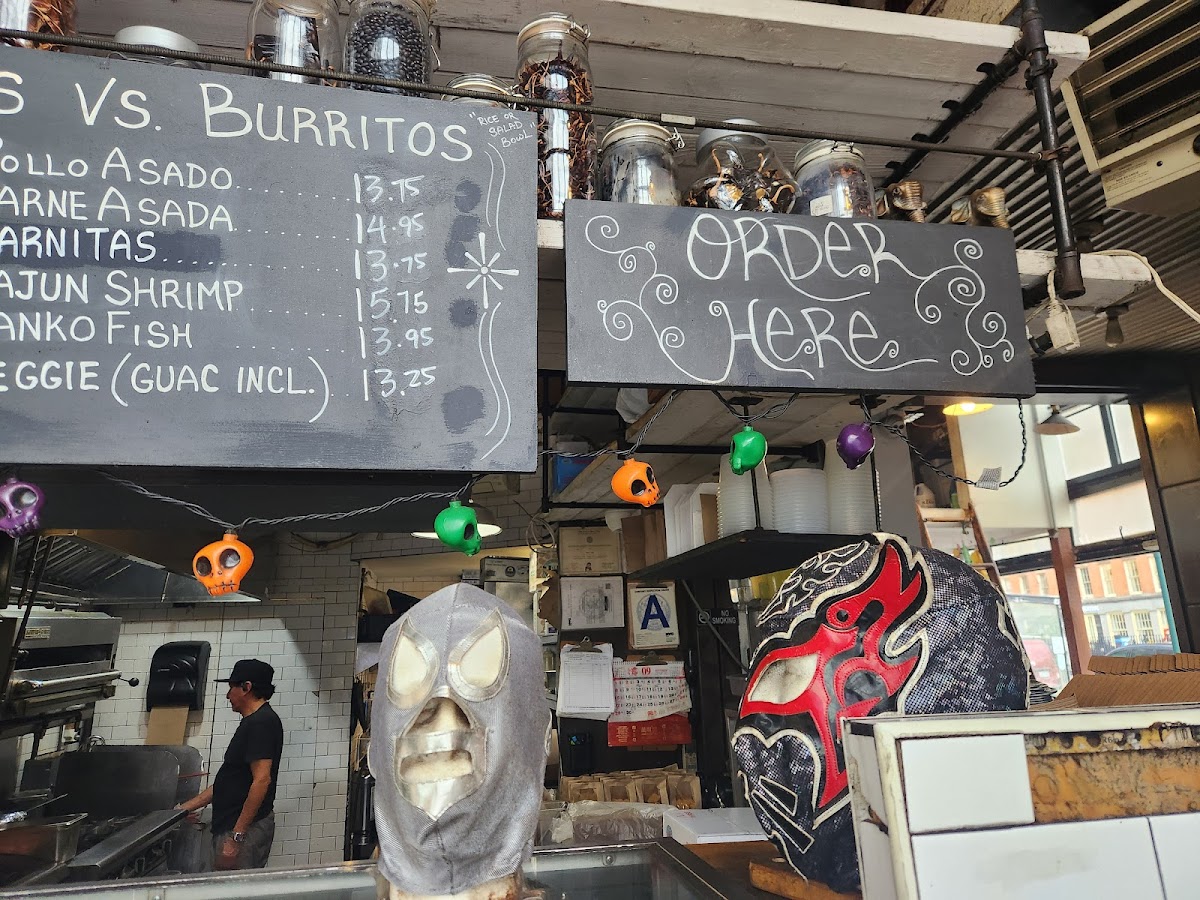 S VS. BURRITOS
"RICE OR
SALAD
BOWL"
OLLO ASADO 13.75
ARNE ASADA 14.95
ARNITAS 13.75
AJUN SHRIMP 15.75
ANKO FISH 13.95
EGGIE (GUAC INCL.) 13.25
ORDER
HERE
A
NO
SMOKING